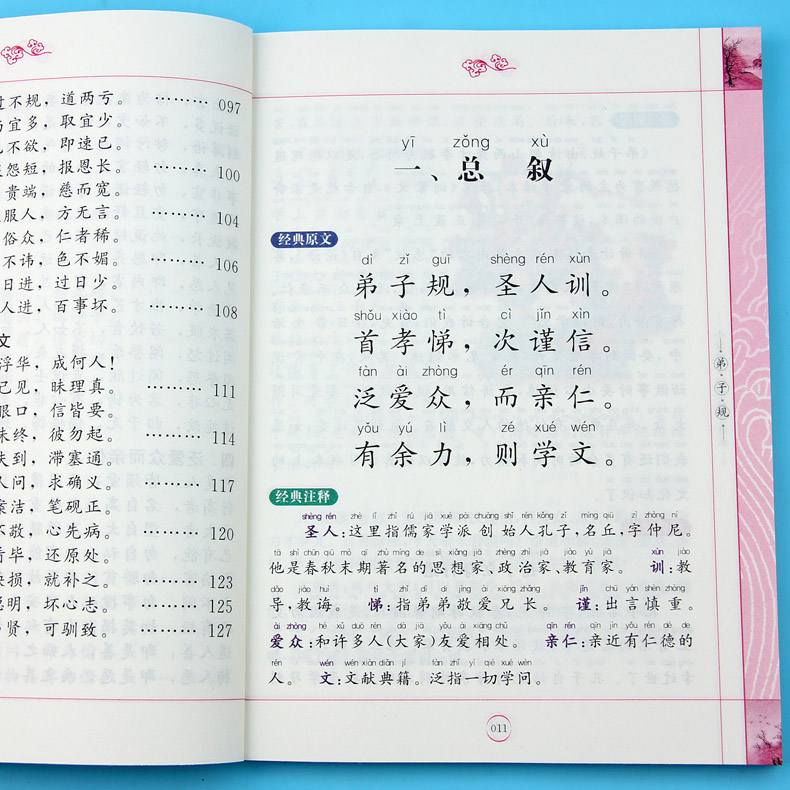 不规，道两亏。 ……… 097
宜多，取宜少。
不欲，即速已。
怨短，报恩长。 ……… 100
贵端，慈而宽。
服人，方无言。 ……… 104
俗众，仁者稀。
不讳，色不媚。 ……… 106
日进，过日少。
人进，百事坏。 ……… 108
文
浮华，成何人！
己见，昧理真。 ……… 111
眼口，信皆要。
未终，彼勿起。 ……… 114
到，滞塞通。
人问，求确义。 ……… 117
洁，笔砚正。
不敬，心先病。 ……… 120
毕，还原处。
损，就补之。 ……… 123
明，坏心志。 ……… 125
贤，可驯致。 ……… 127
yī zǒng xù
一、总 叙
经典原文
dì zǐ guī shèng rén xùn
弟子规，圣人训。
shǒu xiào tì cì jǐn xìn
首孝悌，次谨信。
fàn ài zhòng ér qīn rén
泛爱众，而亲仁。
yǒu yú lì zé xué wén
有余力，则学文。
经典注释
shèng rén zhè lǐ zhǐ rú jiā xué pài chuàng shǐ rén kǒng zǐ míng qiū zì zhòng ní
圣人：这里指儒家学派创始人孔子，名丘，字仲尼。
tā shì chūn qiū mò qī zhù míng de sī xiǎng jiā zhèng zhì jiā jiào yù jiā xùn jiào
他是春秋末期著名的思想家、政治家、教育家。 训：教
dǎo jiào huì tì zhǐ dì di jìng ài xiōng zhǎng jǐn chū yán shèn zhòng
导，教诲。 悌：指弟弟敬爱兄长。 谨：出言慎重。
ài zhòng hé xǔ duō rén dà jiā yǒu ài xiāng chǔ qīn rén qīn jìn yǒu rén dé de
爱众：和许多人（大家）友爱相处。 亲仁：亲近有仁德的
rén wén wén xiàn diǎn jí fàn zhǐ yí qiè xué wèn
人。 文：文献典籍。泛指一切学问。
弟·子·规
011